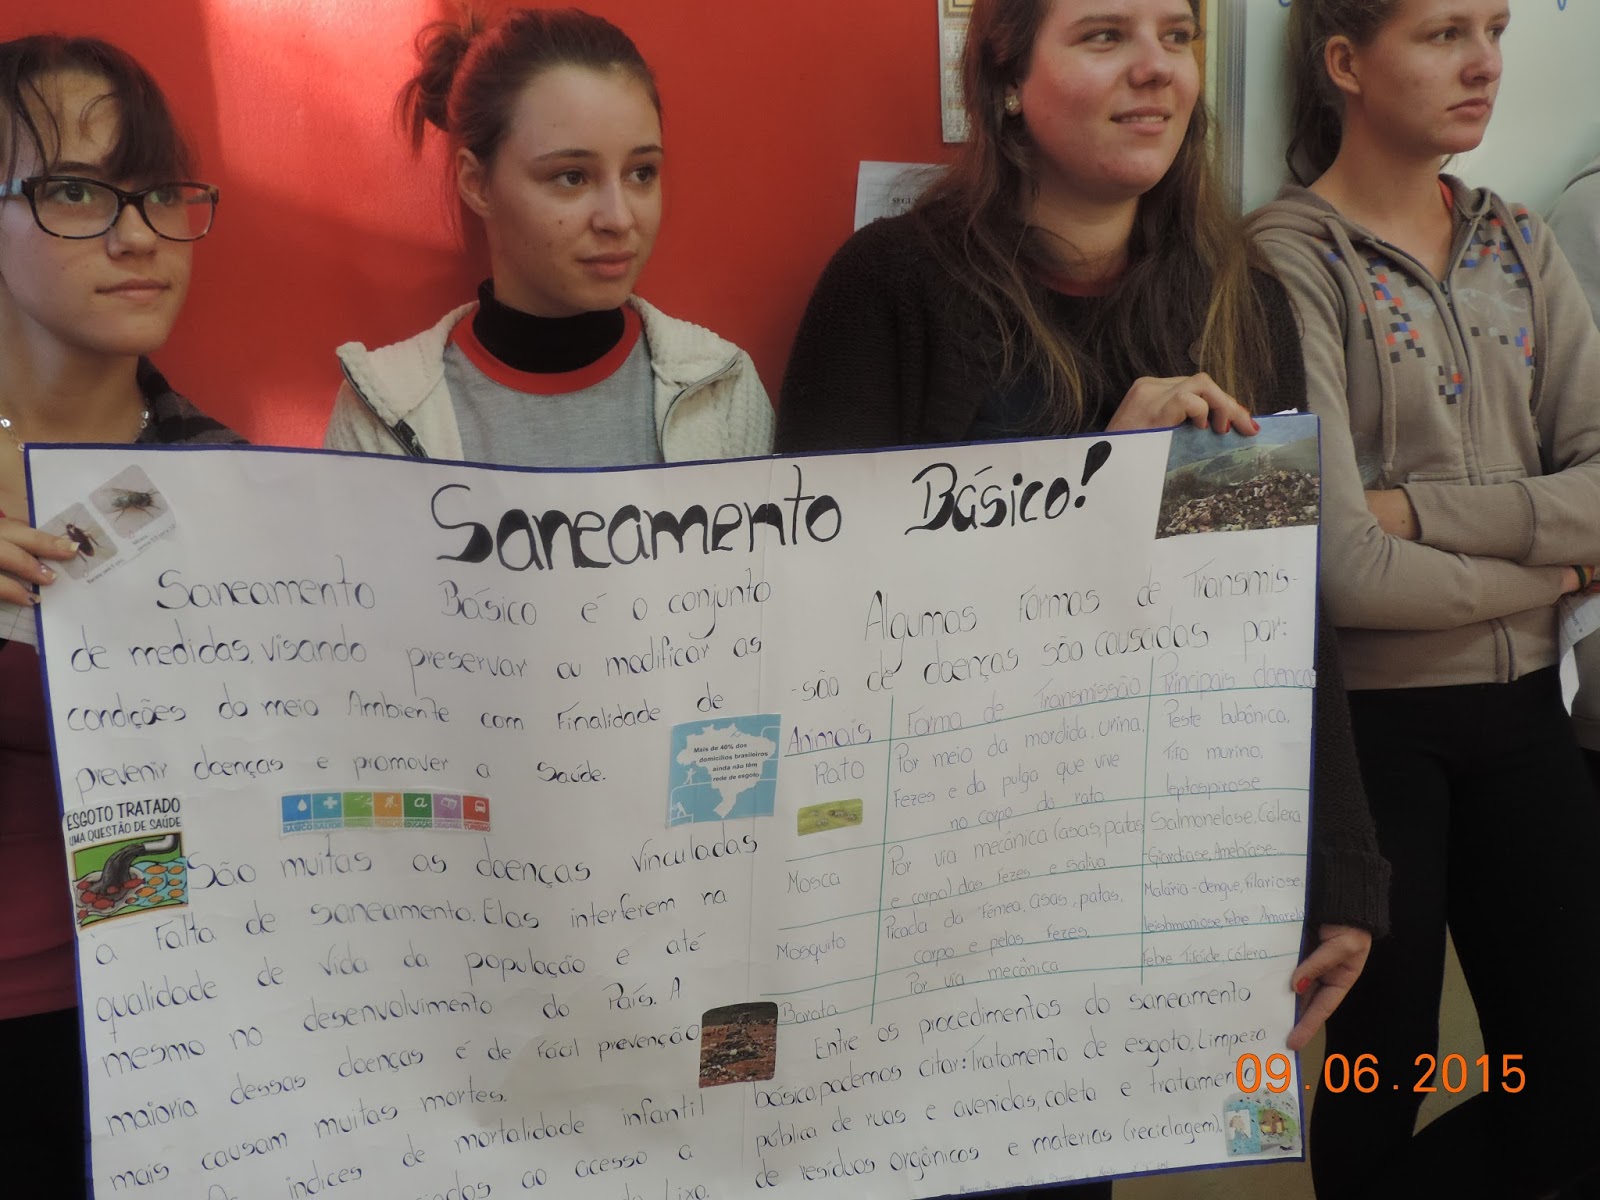 Saneamento Básico!
Saneamento Básico é o conjunto
de medidas, visando preservar ou modificar as
condições do meio Ambiente com Finalidade de
prevenir doenças e promover a Saúde.
Mais de 40% dos
domicílios brasileiros
ainda não têm
rede de esgoto
ESGOTO TRATADO
UMA QUESTÃO DE SAÚDE
São muitas as doenças vinculadas
à Falta de saneamento. Elas interferem na
qualidade de vida da população e até
mesmo no desenvolvimento do País. A
maioria dessas doenças é de Fácil prevenção
mais causam muitas mortes.
índices de mortalidade infantil
ao acesso a
Lixo.
Algumas Formas de Transmis-
-são de doenças são causadas por:
Animais Forma de Transmissão Principais doenças
Rato Por meio da mordida, urina, Peste bubônica,
Fezes e da pulga que vive Tifo murino,
no corpo do rato leptospirose
Mosca Por via mecânica (asas, patas Salmonelose, Cólera
e corpo) das fezes e saliva Giardíase, Amebíase
Mosquito Picada da Fêmea, asas, patas, Malária - dengue, Filariose,
corpo e pelas fezes. leishmaniose, Febre Amarela
Barata Por via mecânica Febre Tifóide, Cólera
Entre os procedimentos do saneamento
básico, podemos citar: Tratamento de esgoto, Limpeza
pública de ruas e avenidas, coleta e tratamento
de resíduos orgânicos e materias (reciclagem).
09.06.2015